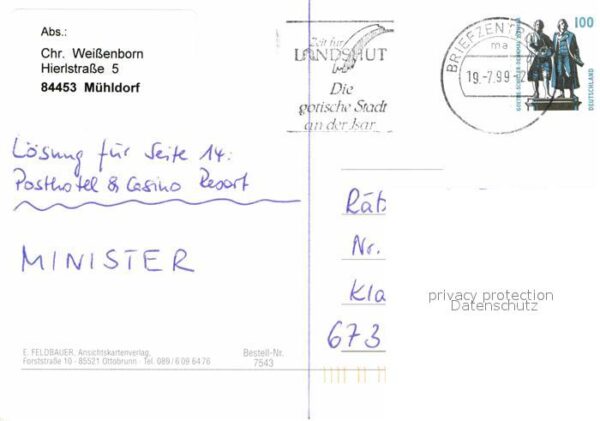 Abs.:
Chr. Weißenborn
Hierlstraße 5
84453 Mühldorf
Zeit für
LANDSHUT
Die
gotische Stadt
an der Isar
BRIEFZENTR
ma
19.-7.99-
100
GOETHE-SCHILLER-DENKMAL WEIMAR
DEUTSCHLAND
Lösung für Seite 14:
Posthotel & Casino Resort
MINISTER
Rät
Nr.
Kla
673
privacy protection
Datenschutz
E. FELDBAUER, Ansichtskartenverlag,
Forststraße 10 - 85521 Ottobrunn Tel. 089/6 09 64 76
Bestell-Nr.
7543